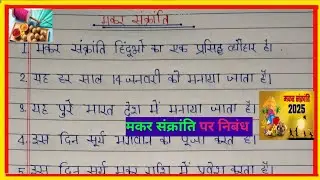 मकर संक्रांति
1. मकर संक्रांति हिंदूओ का एक प्रसिद्ध त्यौहार है।
2. यह हर साल 14 जनवरी को मनाया जाता है।
3. यह पुरे भारत देश में मनाया जाता है।
मकर संक्रांति पर निबंध
4. इस दिन सूर्य भगवान की पूजा करते है।
5. इस दिन सूर्य मकर राशि में प्रवेश करता है।
मकर संक्रांति
2025